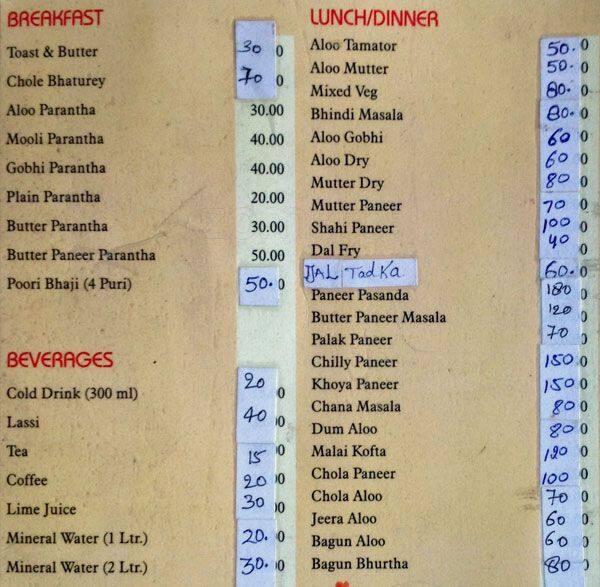 BREAKFAST
Toast & Butter 30
Chole Bhaturey 70
Aloo Parantha 30.00
Mooli Parantha 40.00
Gobhi Parantha 40.00
Plain Parantha 20.00
Butter Parantha 30.00
Butter Paneer Parantha 50.00
Poori Bhaji (4 Puri) 50.
BEVERAGES
Cold Drink (300 ml) 20
Lassi 40
Tea 15
Coffee 20
Lime Juice 30
Mineral Water (1 Ltr.) 20.
Mineral Water (2 Ltr.) 30.
LUNCH/DINNER
Aloo Tamator 50.
Aloo Mutter 50.
Mixed Veg 80.
Bhindi Masala 80.
Aloo Gobhi 60
Aloo Dry 60
Mutter Dry 80
Mutter Paneer 70
Shahi Paneer 100
Dal Fry 40
DAL TadKa 60.
Paneer Pasanda 180
Butter Paneer Masala 120
Palak Paneer 70
Chilly Paneer 150
Khoya Paneer 150
Chana Masala 80
Dum Aloo 80
Malai Kofta 120
Chola Paneer 100
Chola Aloo 70
Jeera Aloo 60
Bagun Aloo 60
Bagun Bhurtha 80